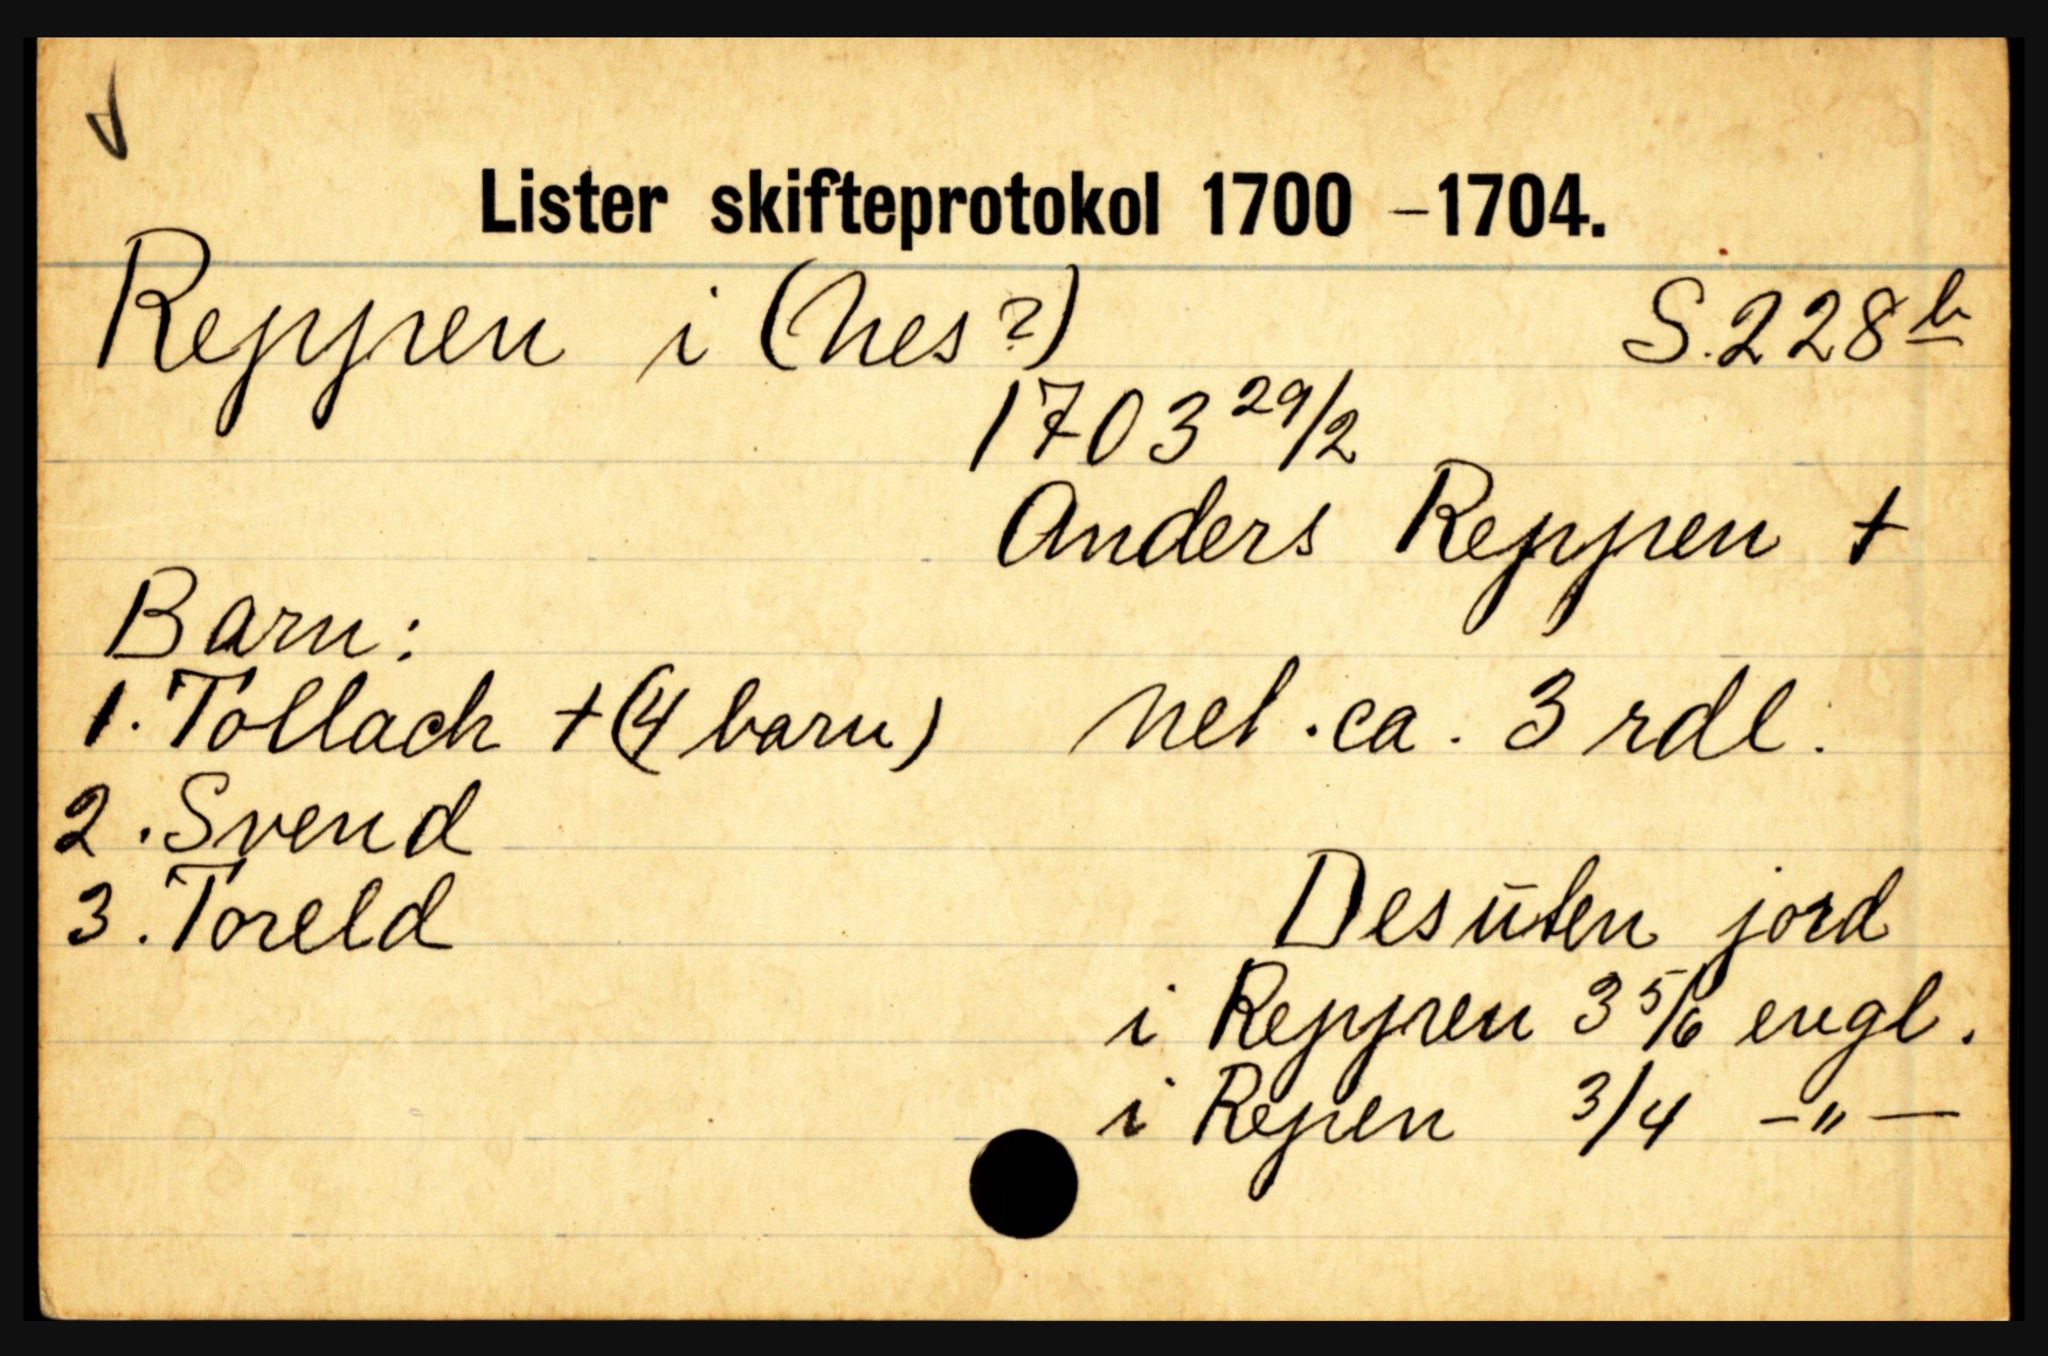 Lister skifteprotokol 1700 - 1704.
Reppen i (Nes?) S. 228 b
1703 29/2
Anders Reppen +
Barn:
1. Tollach + (4 barn) nel. ca. 3 rdl.
2. Svend
3. Toreld
Desuten jord
i Reppen 3 5/6 engl.
i Repen 3/4 - " -